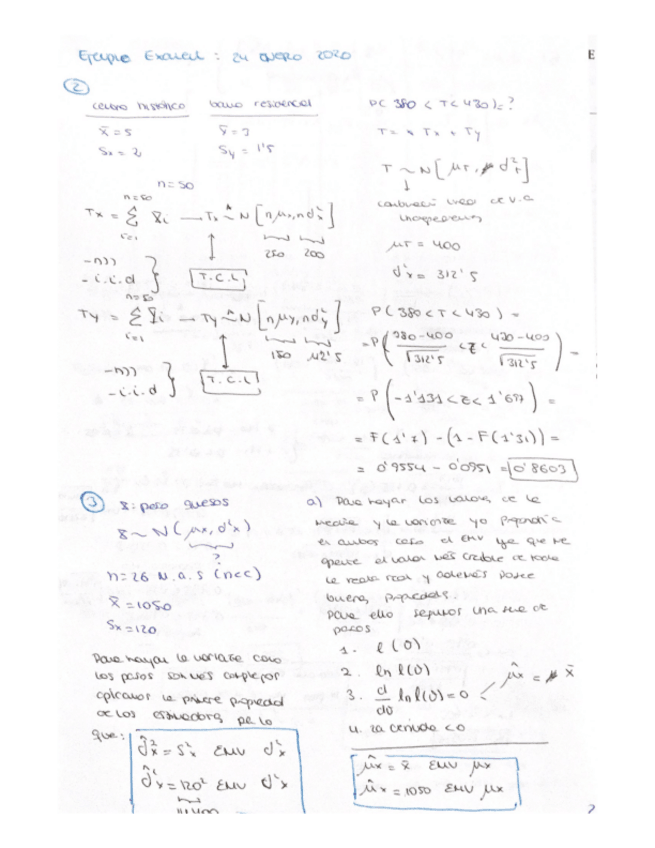 Ejemplo Examen : 24 enero 2020
E
②
centro histórico   barrio residencial
x̄ = 5   ȳ = 3
Sx = 2   Sy = 1'5
n = 50
n=50
Tx = Σ Xi → Tx ~ N [nμx, nσ²x]
i=1
250   200
-n>>
- i.i.d
T.C.L
n=50
Ty = Σ Yi → Ty ~ N [nμy, nσ²y]
i=1
150   112'5
-n>>
- i.i.d
T.C.L
P( 380 < T < 430) = ?
T = Tx + Ty
T ~ N [μT, σ²T]
combinación lineal de v.a
independientes
μT = 400
σ²x = 312'5
P( 380 < T < 430) =
= P( 380-400 / √312'5 < Z < 430-400 / √312'5 ) =
= P ( -1'131 < Z < 1'697 ) =
= F(1'7) - (1 - F(1'31)) =
= 0'9554 - 0'0951 = 0'8603
③ X : peso quesos
X ~ N( μx, σ²x)
?
n = 26 M.a.s (n<<)
x̄ = 1050
Sx = 120
Para hayar la variante como
los pasos son más complejos
aplicamos la primera propiedad
de los estimadores, por lo
que:
σ̂²x = S²x EMV σ²x
σ̂²x = 120² EMV σ²x
14400
a) Para hayar los valores de la
media y la variante yo
en ambos casos el EMV ya que me
el valor más creible de toda
la y además posee
buenas propiedades.
Para ello seguimos una serie de
pasos
1. l (θ)
2. ln l(θ)
3. d/dθ ln l(θ) = 0 < μ̂x = x̄
4. 2a derivada < 0
μ̂x = x̄ EMV μx
μ̂x = 1050 EMV μx
2